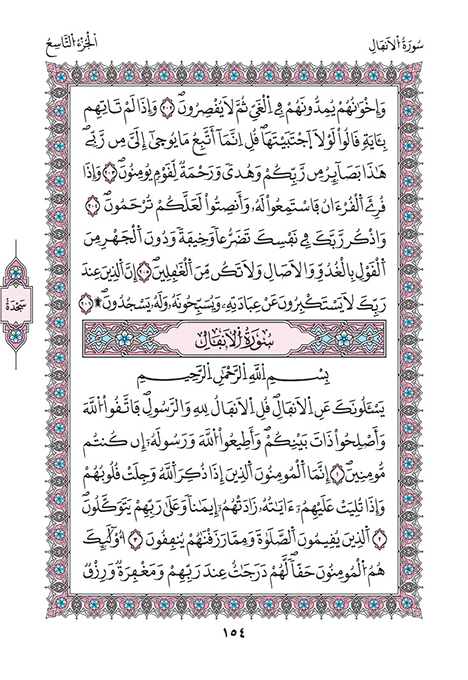 سُورَةُ الْأَنفَالِ
الْجُزْءُ التَّاسِعُ
وَإِخْوَانُهُمْ يُمِدُّونَهُمْ فِي الْغَيِّ ثُمَّ لَا يُقْصِرُونَ ٢٠٢ وَإِذَا لَمْ تَاتِهِم
بِـَٔايَةٍ قَالُواْ لَوْلَا اَجْتَبَيْتَهَا قُلِ اِنَّمَا أَتَّبِعُ مَا يُوحَىٰ إِلَيَّ مِن رَّبِّي
هَٰذَا بَصَآئِرُ مِن رَّبِّكُمْ وَهُدىً وَرَحْمَةٌ لِّقَوْمٍ يُومِنُونَ ٢٠٣ وَإِذَا
قُرِئَ الْقُرْءَانُ فَاسْتَمِعُواْ لَهُۥ وَأَنصِتُواْ لَعَلَّكُمْ تُرْحَمُونَ ٢٠٤
وَاذْكُر رَّبَّكَ فِي نَفْسِكَ تَضَرُّعاً وَخِيفَةً وَدُونَ الْجَهْرِ مِنَ
الْقَوْلِ بِالْغُدُوِّ وَالْأَصَالِ وَلَا تَكُن مِّنَ الْغَٰفِلِينَ ٢٠٥ إِنَّ الَّذِينَ عِندَ
رَبِّكَ لَا يَسْتَكْبِرُونَ عَنْ عِبَادَتِهِۦ وَيُسَبِّحُونَهُۥ وَلَهُۥ يَسْجُدُونَ ٢٠٦
سَجْدَةٌ
سُورَةُ الْأَنفَالِ
بِسْمِ اللَّهِ الرَّحْمَٰنِ الرَّحِيمِ
يَسْـَٔلُونَكَ عَنِ الْأَنفَالِ قُلِ الْأَنفَالُ لِلهِ وَالرَّسُولِ فَاتَّقُواْ اللَّهَ
وَأَصْلِحُواْ ذَاتَ بَيْنِكُمْ وَأَطِيعُواْ اللَّهَ وَرَسُولَهُۥ إِن كُنتُم
مُّومِنِينَ ١ إِنَّمَا الْمُومِنُونَ الَّذِينَ إِذَا ذُكِرَ اللَّهُ وَجِلَتْ قُلُوبُهُمْ
وَإِذَا تُلِيَتْ عَلَيْهِمُۥ ءَايَٰتُهُۥ زَادَتْهُمُۥ إِيمَٰناً وَعَلَىٰ رَبِّهِمْ يَتَوَكَّلُونَ
٢ الَّذِينَ يُقِيمُونَ الصَّلَوٰةَ وَمِمَّا رَزَقْنَٰهُمْ يُنفِقُونَ ٣ أُوْلَٰٓئِكَ
هُمُ الْمُومِنُونَ حَقّاً لَّهُمْ دَرَجَٰتٌ عِندَ رَبِّهِمْ وَمَغْفِرَةٌ وَرِزْقٌ
١٥٤